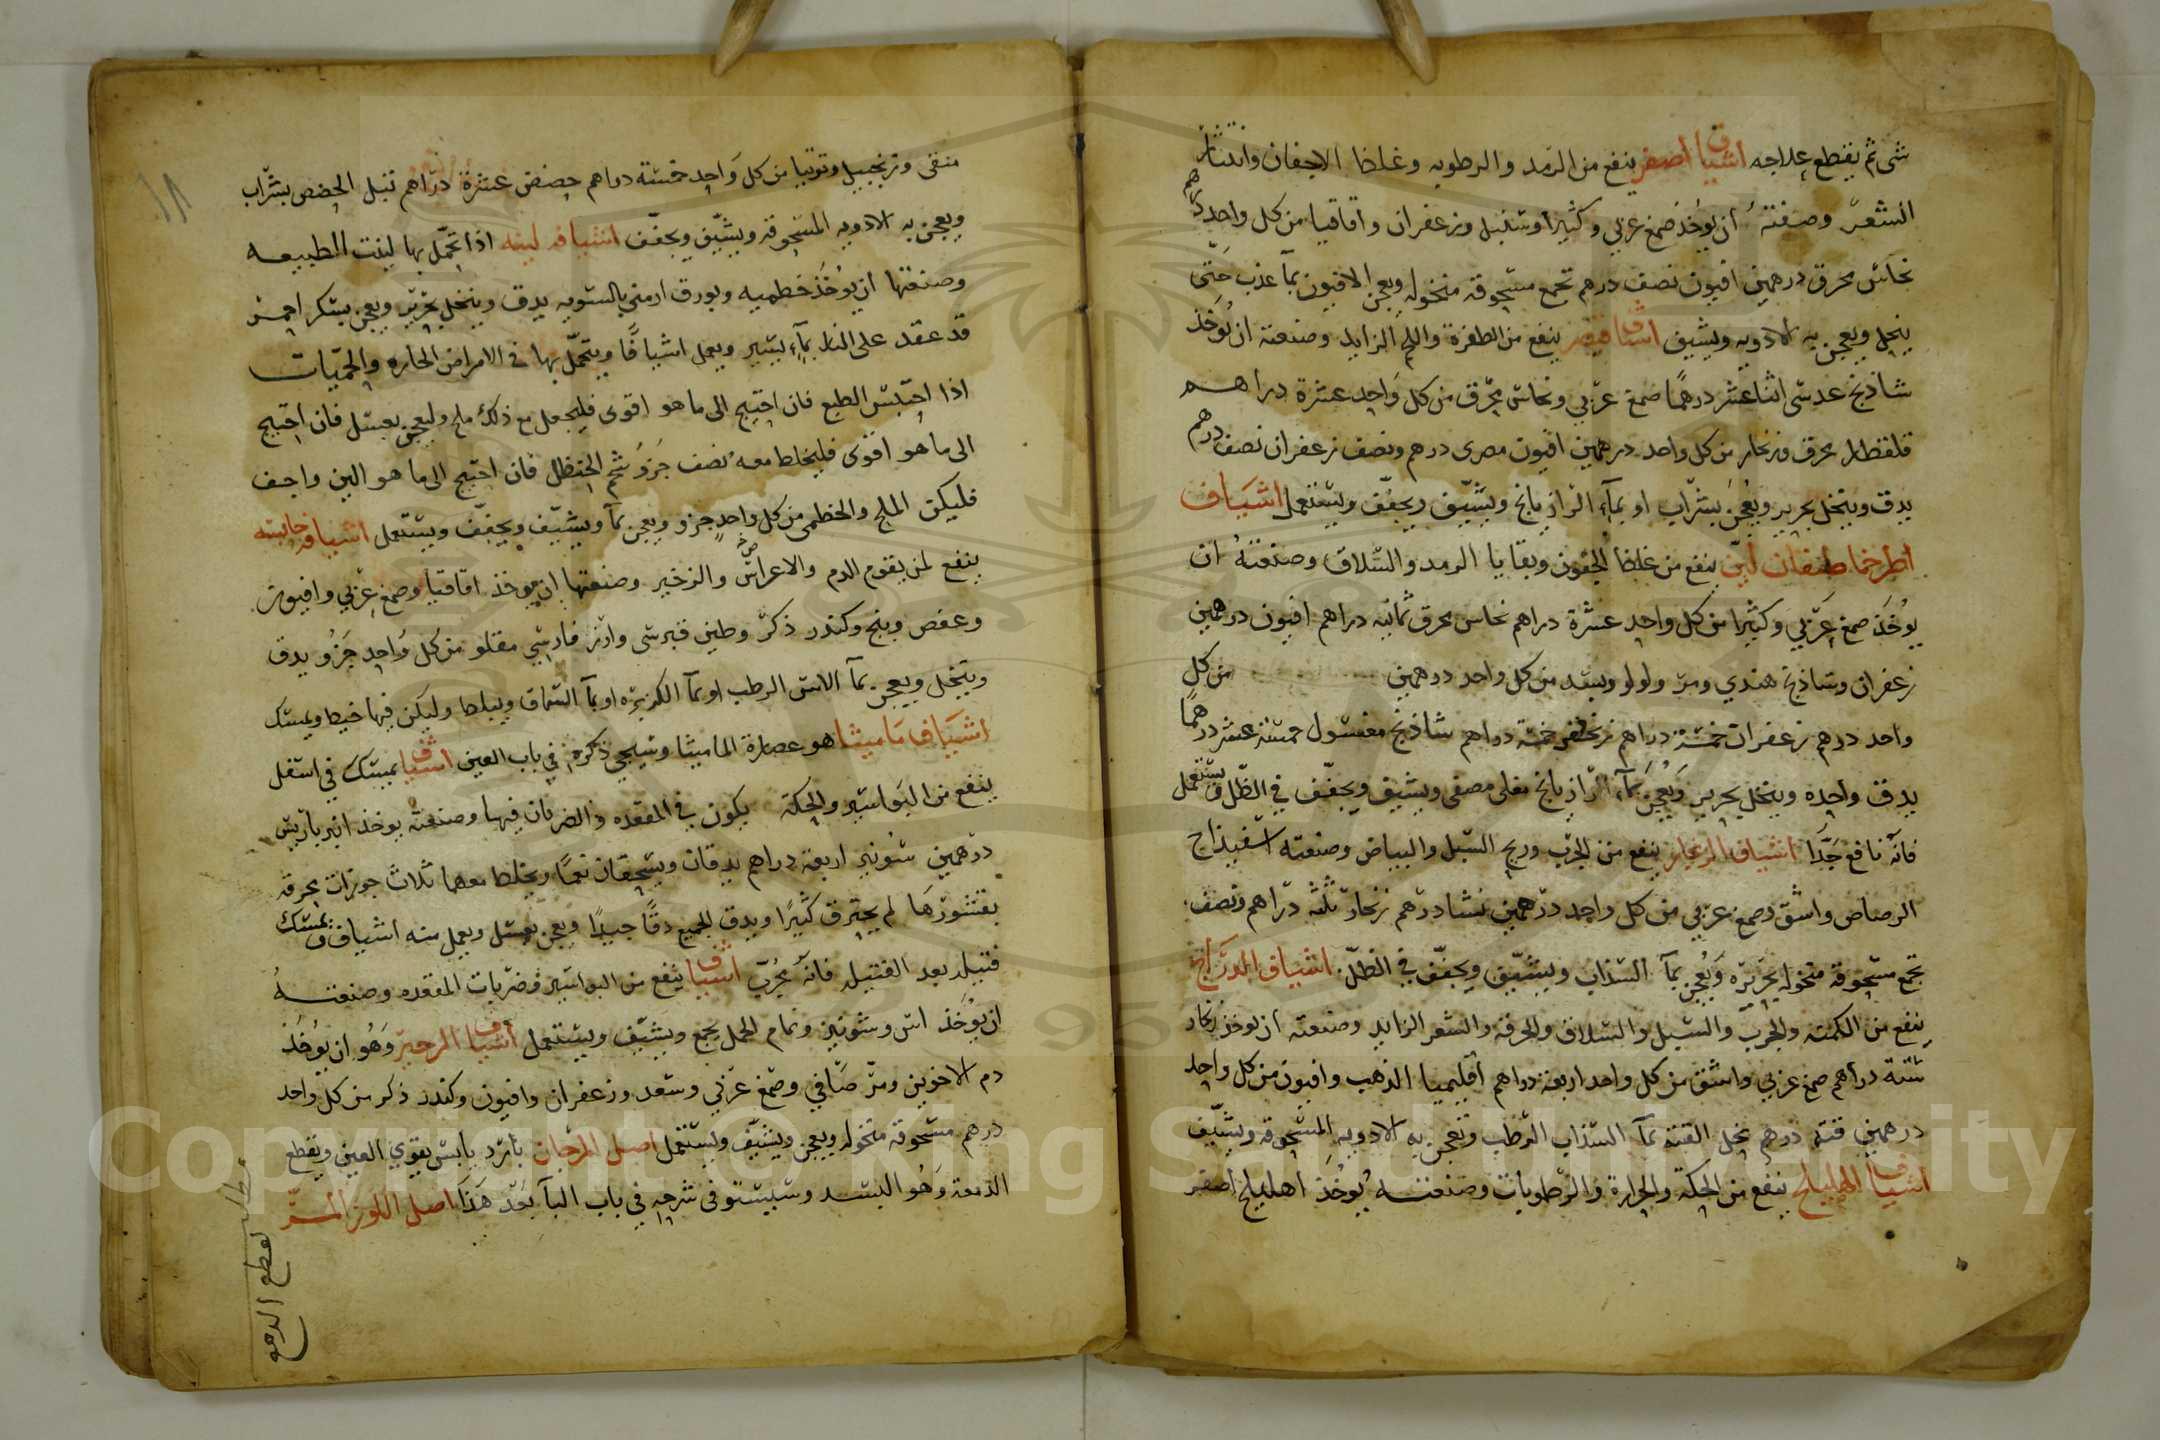 شى ثم يقطع علاجه اشياف اصفر ينفع من الرمد والرطوبه وغلظ الاجفان وانتثار
الشعر وصفته ان يوخذ صمغ عربي وكثيرا وسنبل وزعفران واقاقيا من كل واحد درهم
نحاس محرق درهمين افيون نصف درهم تجمع مسحوقه منخوله ويعجن الافيون بمآ عذب حتى
ينحل ويعجن به الادويه ويشيف اشياف قيصر ينفع من الظفرة واللحم الزايد وصنعته ان يوخذ
شاذنج عدسى اثنا عشر درهمًا صمغ عربي ونحاس محرق من كل واحد عشرة دراهم
قلقطار محرق وزنجار من كل واحد درهمين افيون مصرى درهم ونصف زعفران نصف درهم
يدق وينخل بحرير ويعجن بشراب او بمآء الرازيانج ويشيف ويجفف ويستعمل اشياف
اطرخماطيقان لين ينفع من غلظ الجفون وبقايا الرمد والسلاق وصنعته ان
يوخذ صمغ عربي وكثيرا من كل واحد عشرة دراهم نحاس محرق ثمانيه دراهم افيون درهمين
زعفران وشاذنج هندي ومر ولولو وبسد من كل واحد درهمين من كل
واحد درهم زعفران خمسة دراهم زنجفر خمسة دراهم شاذنج مغسول خمسة عشر درهمًا
يدق واحده وينخل بحرير ويعجن بمآء الرازيانج مغلى مصفى ويشيف ويجفف في الظل ويستعمل
فانه نافع جدًا اشياف الزنجار ينفع من الجرب وريح السبل والبياض وصنعته اسفيذاج
الرصاص واشق وصمغ عربي من كل واحد درهمين نشادر درهم زنجار ثلثه دراهم ونصف
تجمع مسحوقه منخوله بحريره ويعجن بمآ السذاب ويشيف ويجفف في الظل اشياف الدارج
ينفع من الكمنه والجرب والسبل والسلاق والحرقه والشعر الزايد وصنعته ان يوخذ زنجار
ستة دراهم صمغ عربي واشق من كل واحد اربعة دراهم اقليميا الذهب وافيون من كل واحد
درهمين قنه درهم تحل القنه بمآ السذاب الرطب وتعجن به الادويه المسحوقه ويشيف
اشياف الهليلج ينفع من الحكه والحرارة والرطوبات وصنعته يوخذ اهليلج اصفر
منقى وزنجبيل وتوتيا من كل واحد خمسة دراهم حضض عشرة دراهم تبل الحضض بشراب
ويعجن به الادويه المسحوقه ويشيف ويجفف اشيافه لينه اذا تحمل بها لينت الطبيعه
وصنعتها ان يوخذ خطميه وبورق ارمني بالسويه يدق وينخل بحرير ويعجن بسكر احمر
قد عقد على النار بمآء يسير ويعمل اشيافًا ويتحمل بها في الامراض الحاره والحميات
اذا احتبس الطبع فان احتيج الى ما هو اقوى فليجعل مع ذلك ملح وليعجن بعسل فان احتيج
الى ما هو اقوى فليخلط معه نصف جزو شحم الحنظل فان احتيج الى ما هو الين واخف
فليكن الملح والخطمى من كل واحد جزو ويعجن بمآ ويشيف ويجفف ويستعمل اشيافه حابسه
ينفع لمن يقوم الدم والاعراس والزحير وصنعتها ان يوخذ اقاقيا وصمغ عربي وافيون
وعفص وبنج وكندر ذكر وطين قبرسى وارز فارسي مقلو من كل واحد جزو يدق
وينخل ويعجن بمآ الاس الرطب او بمآ الكزبره او بمآ السماق ويبلط وليكن فيها خيط ويمسك
اشياف ماميثا هو عصارة الماميثا وسيجي ذكره في باب العين اشياف يمسك في اسفل
ينفع من البواسير والحكة يكون في المقعده والضربان فيها وصنعته يوخذ انبرباريس
درهمين شونيز اربعة دراهم يدقان ويسحقان نعمًا ويخلط معهما ثلاث جوزات محرقه
بقشورها لم يحترق كثيرًا ويدق الجميع دقًا جيدًا ويعجن بعسل ويعمل منه اشياف ويمسك
فتيله بعد الفتيله فانه مجرب اشياف ينفع من البواسير وضربات المقعده وصنعته
ان يوخذ اس وشونيز وتمام الحمل يجمع ويشيف ويستعمل اشياف الزحير وهو ان يوخذ
دم الاخوين ومر صافي وصمغ عربي وسعد وزعفران وافيون وكندر ذكر من كل واحد
درهم مسحوقه منخوله ويعجن ويشيف ويستعمل اصل المرجان بارد يابس يقوي العين ويقطع
الدمعة وهو البسد وسيستوفى شرحه في باب البآ بعد هذا اصل اللوز المر
مطلب لقطع الدمع
١٨
Copyright © King Saud University